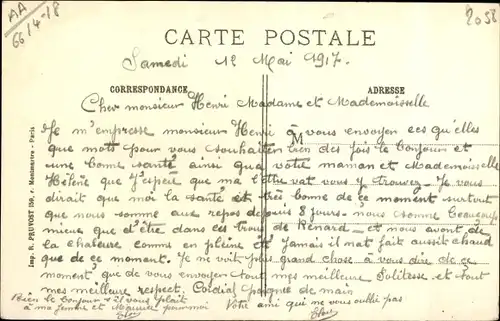 AA
66/4-18
2058
CARTE POSTALE
Samedi 12 Mai 1917.
CORRESPONDANCE
ADRESSE
Cher monsieur Henri Madame et Mademoiselle
Je m'empresse monsieur Henri à vous envoyen ces qu'elles
M
que mots pour vous souhaiter bien des fois le bonjour et
une bonne santé ainsi que votre maman et Mademoiselle
Hélène que j'espère que ma lettre vat vous y trouvez. Je vous
dirait que moi la santé est très bonne de ce moment surtout
que nous somme aux repos depuis 8 jours. nous somme beaucoup
mieux que d'être dans ces trous de Renard. et nous avont de
la chaleure comme en pleine et Jamais il mat fait aussit chaud
que de ce moment. Je ne voit plus grand chose à vous dire de ce
moment que de vous envoyen tout mes meilleure Politesse et tout
mes meilleure respect. Cordial poignés de main
Bien le bonjour s'il vous plait
à ma femme et Maurice pour moi
Votre ami qui ne vous oublie pas
Imp. R. PRUVOST, Montmartre - Paris